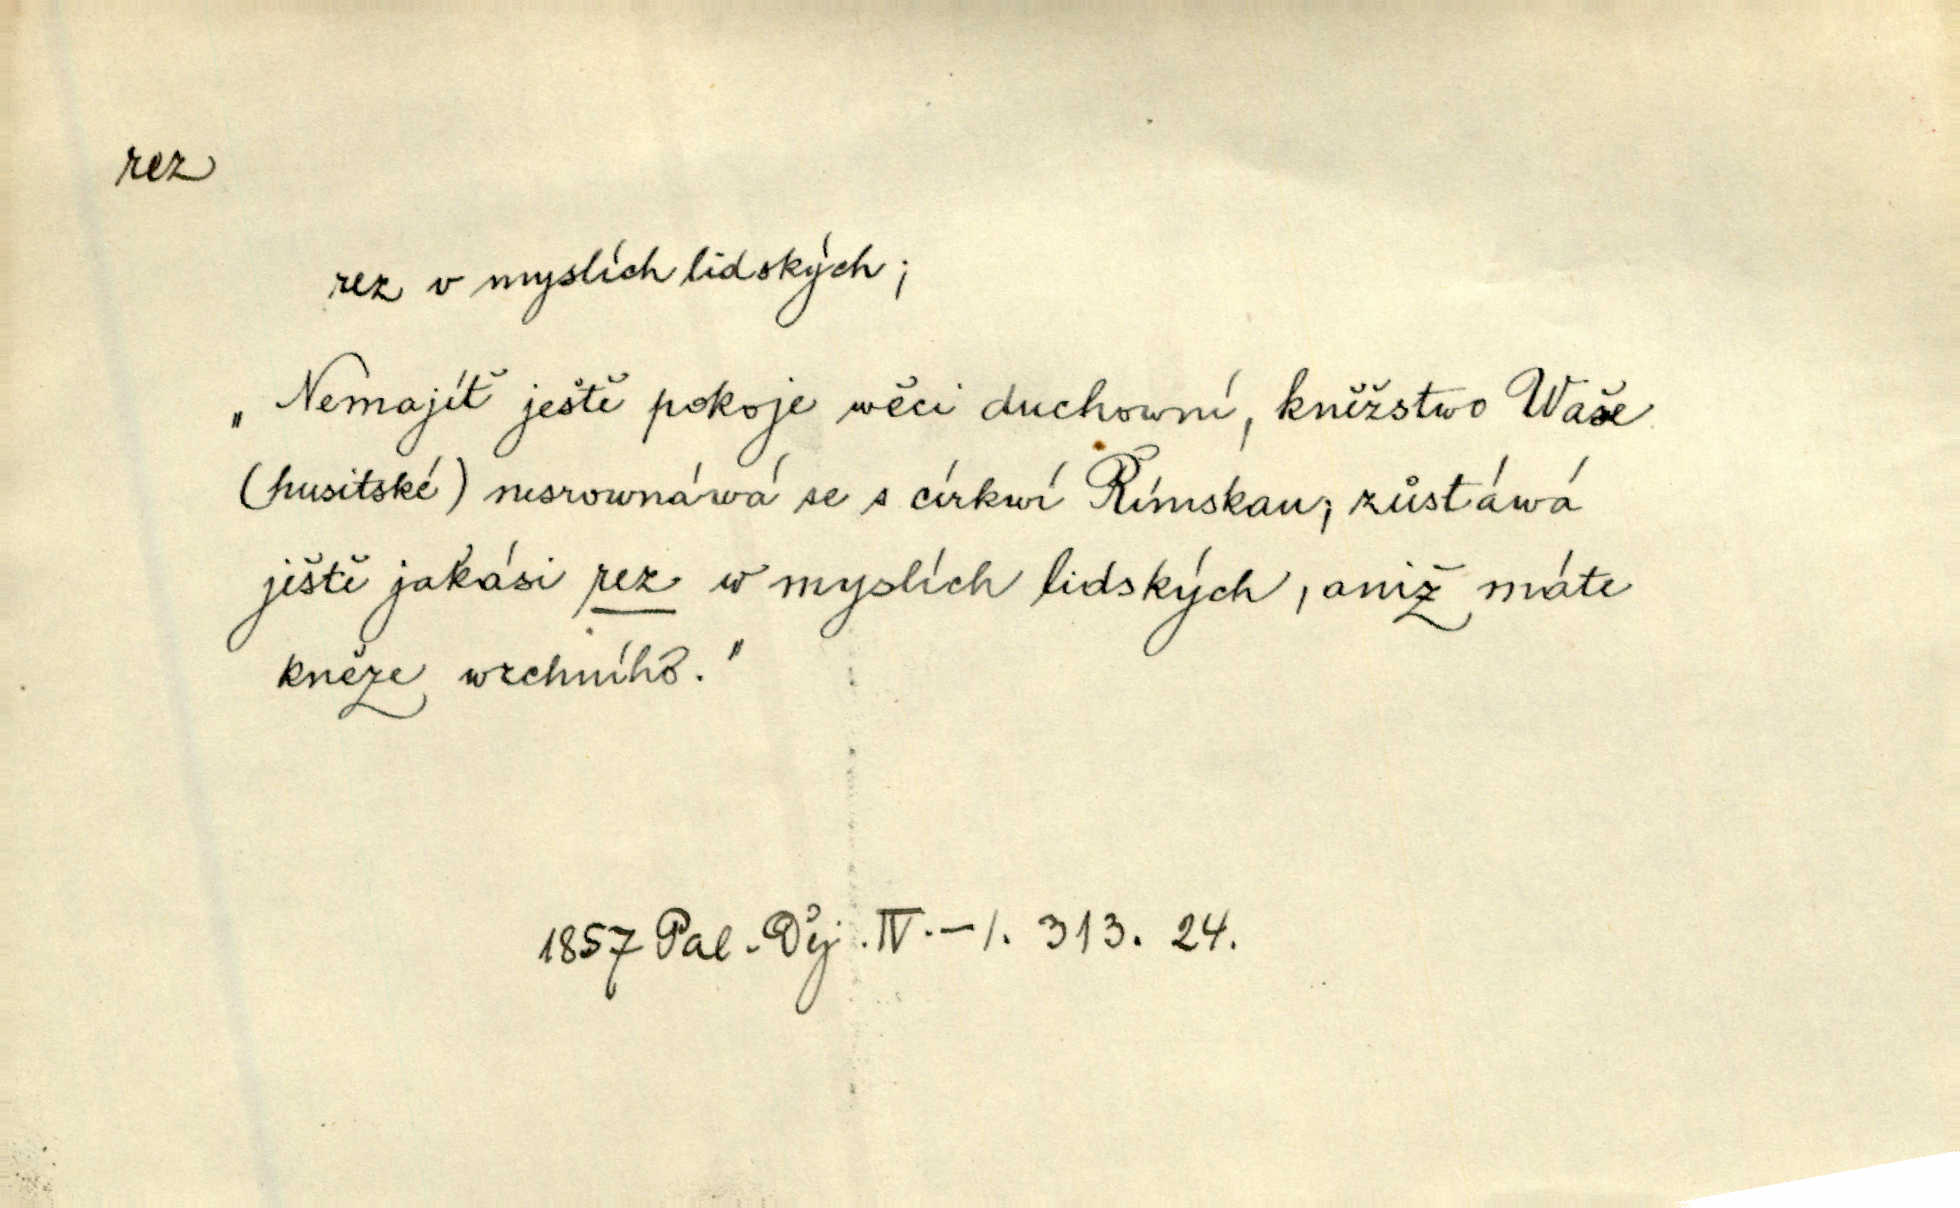 rez
rez v myslích lidských;
„Nemajíť ještě pokoje wěci duchowní, kněžstwo Waše
(husitské) nesrownáwá se s církwí Římskau; zůstáwá
ještě jakási rez w myslích lidských, aniž máte
kněze wrchního."
1857 Pal. Děj. IV.–1. 313. 24.